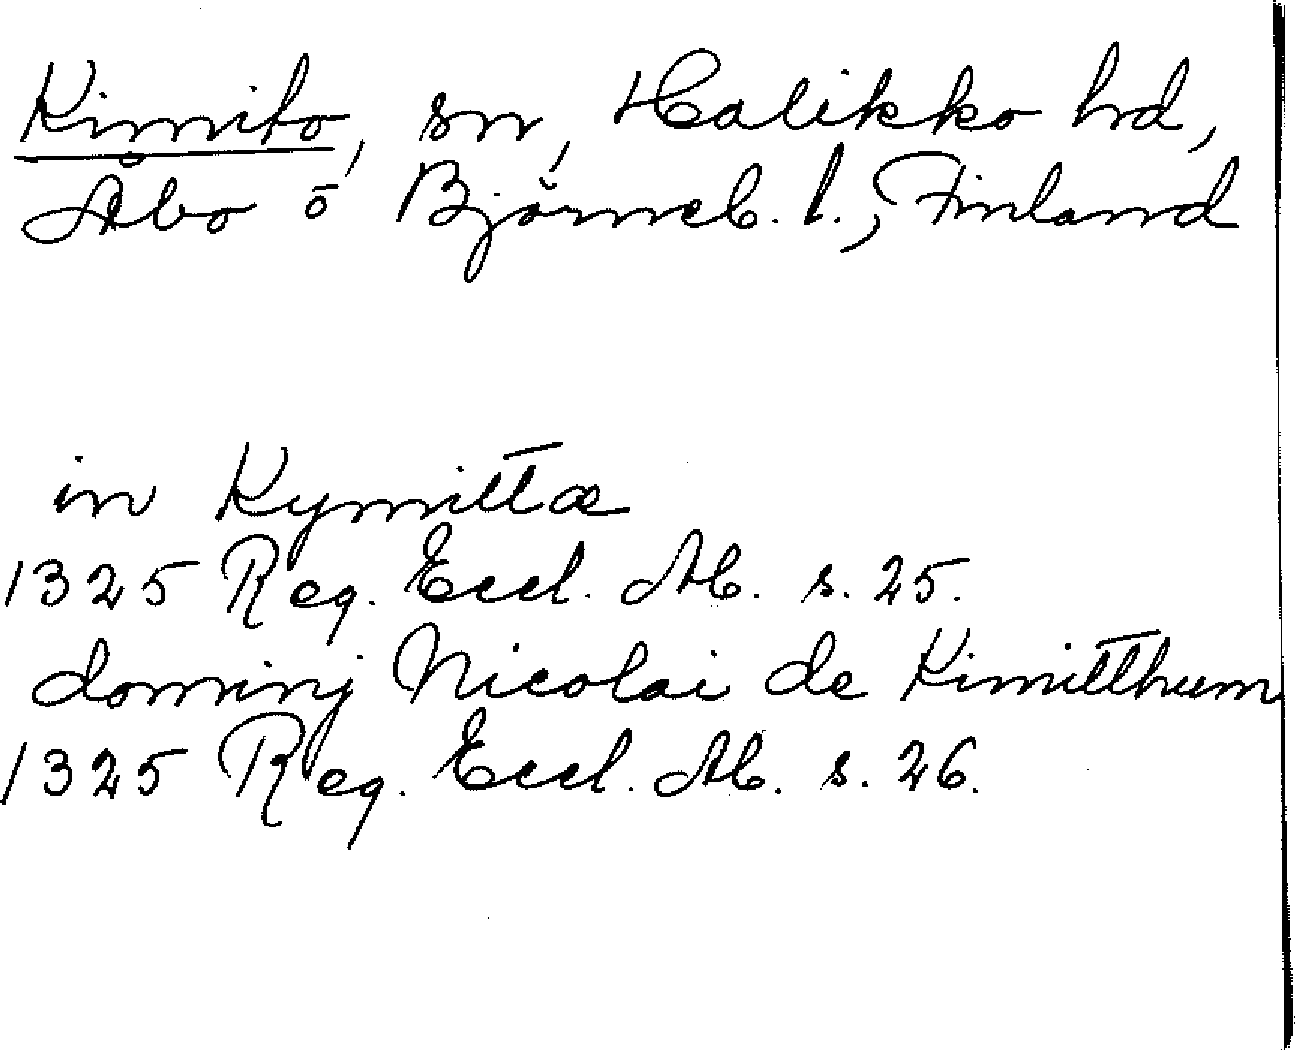 Kimito, sn, Halikko hd,
Åbo o Björneb. l., Finland
in Kymittæ
1325 Reg. Eccl. Ab. s. 25.
dominj Nicolai de Kimitthum
1325 Reg. Eccl. Ab. s. 26.